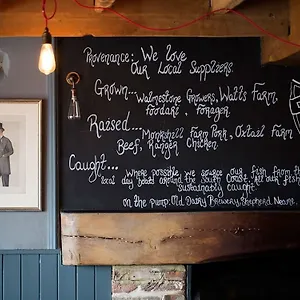 Provenance: We love
Our Local Suppliers.
Grown...
Walmestone Growers, Watts Farm,
foodari, forager.
Raised...
Monkshill Farm Pork, Oxtail Farm
Beef, Ranger Chicken
Caught...
Where possible we source our fish from the
local day boats around the South Coast. All our fish is
sustainably caught.
on the pump: Old Dairy Brewery, Shepherd Neame,